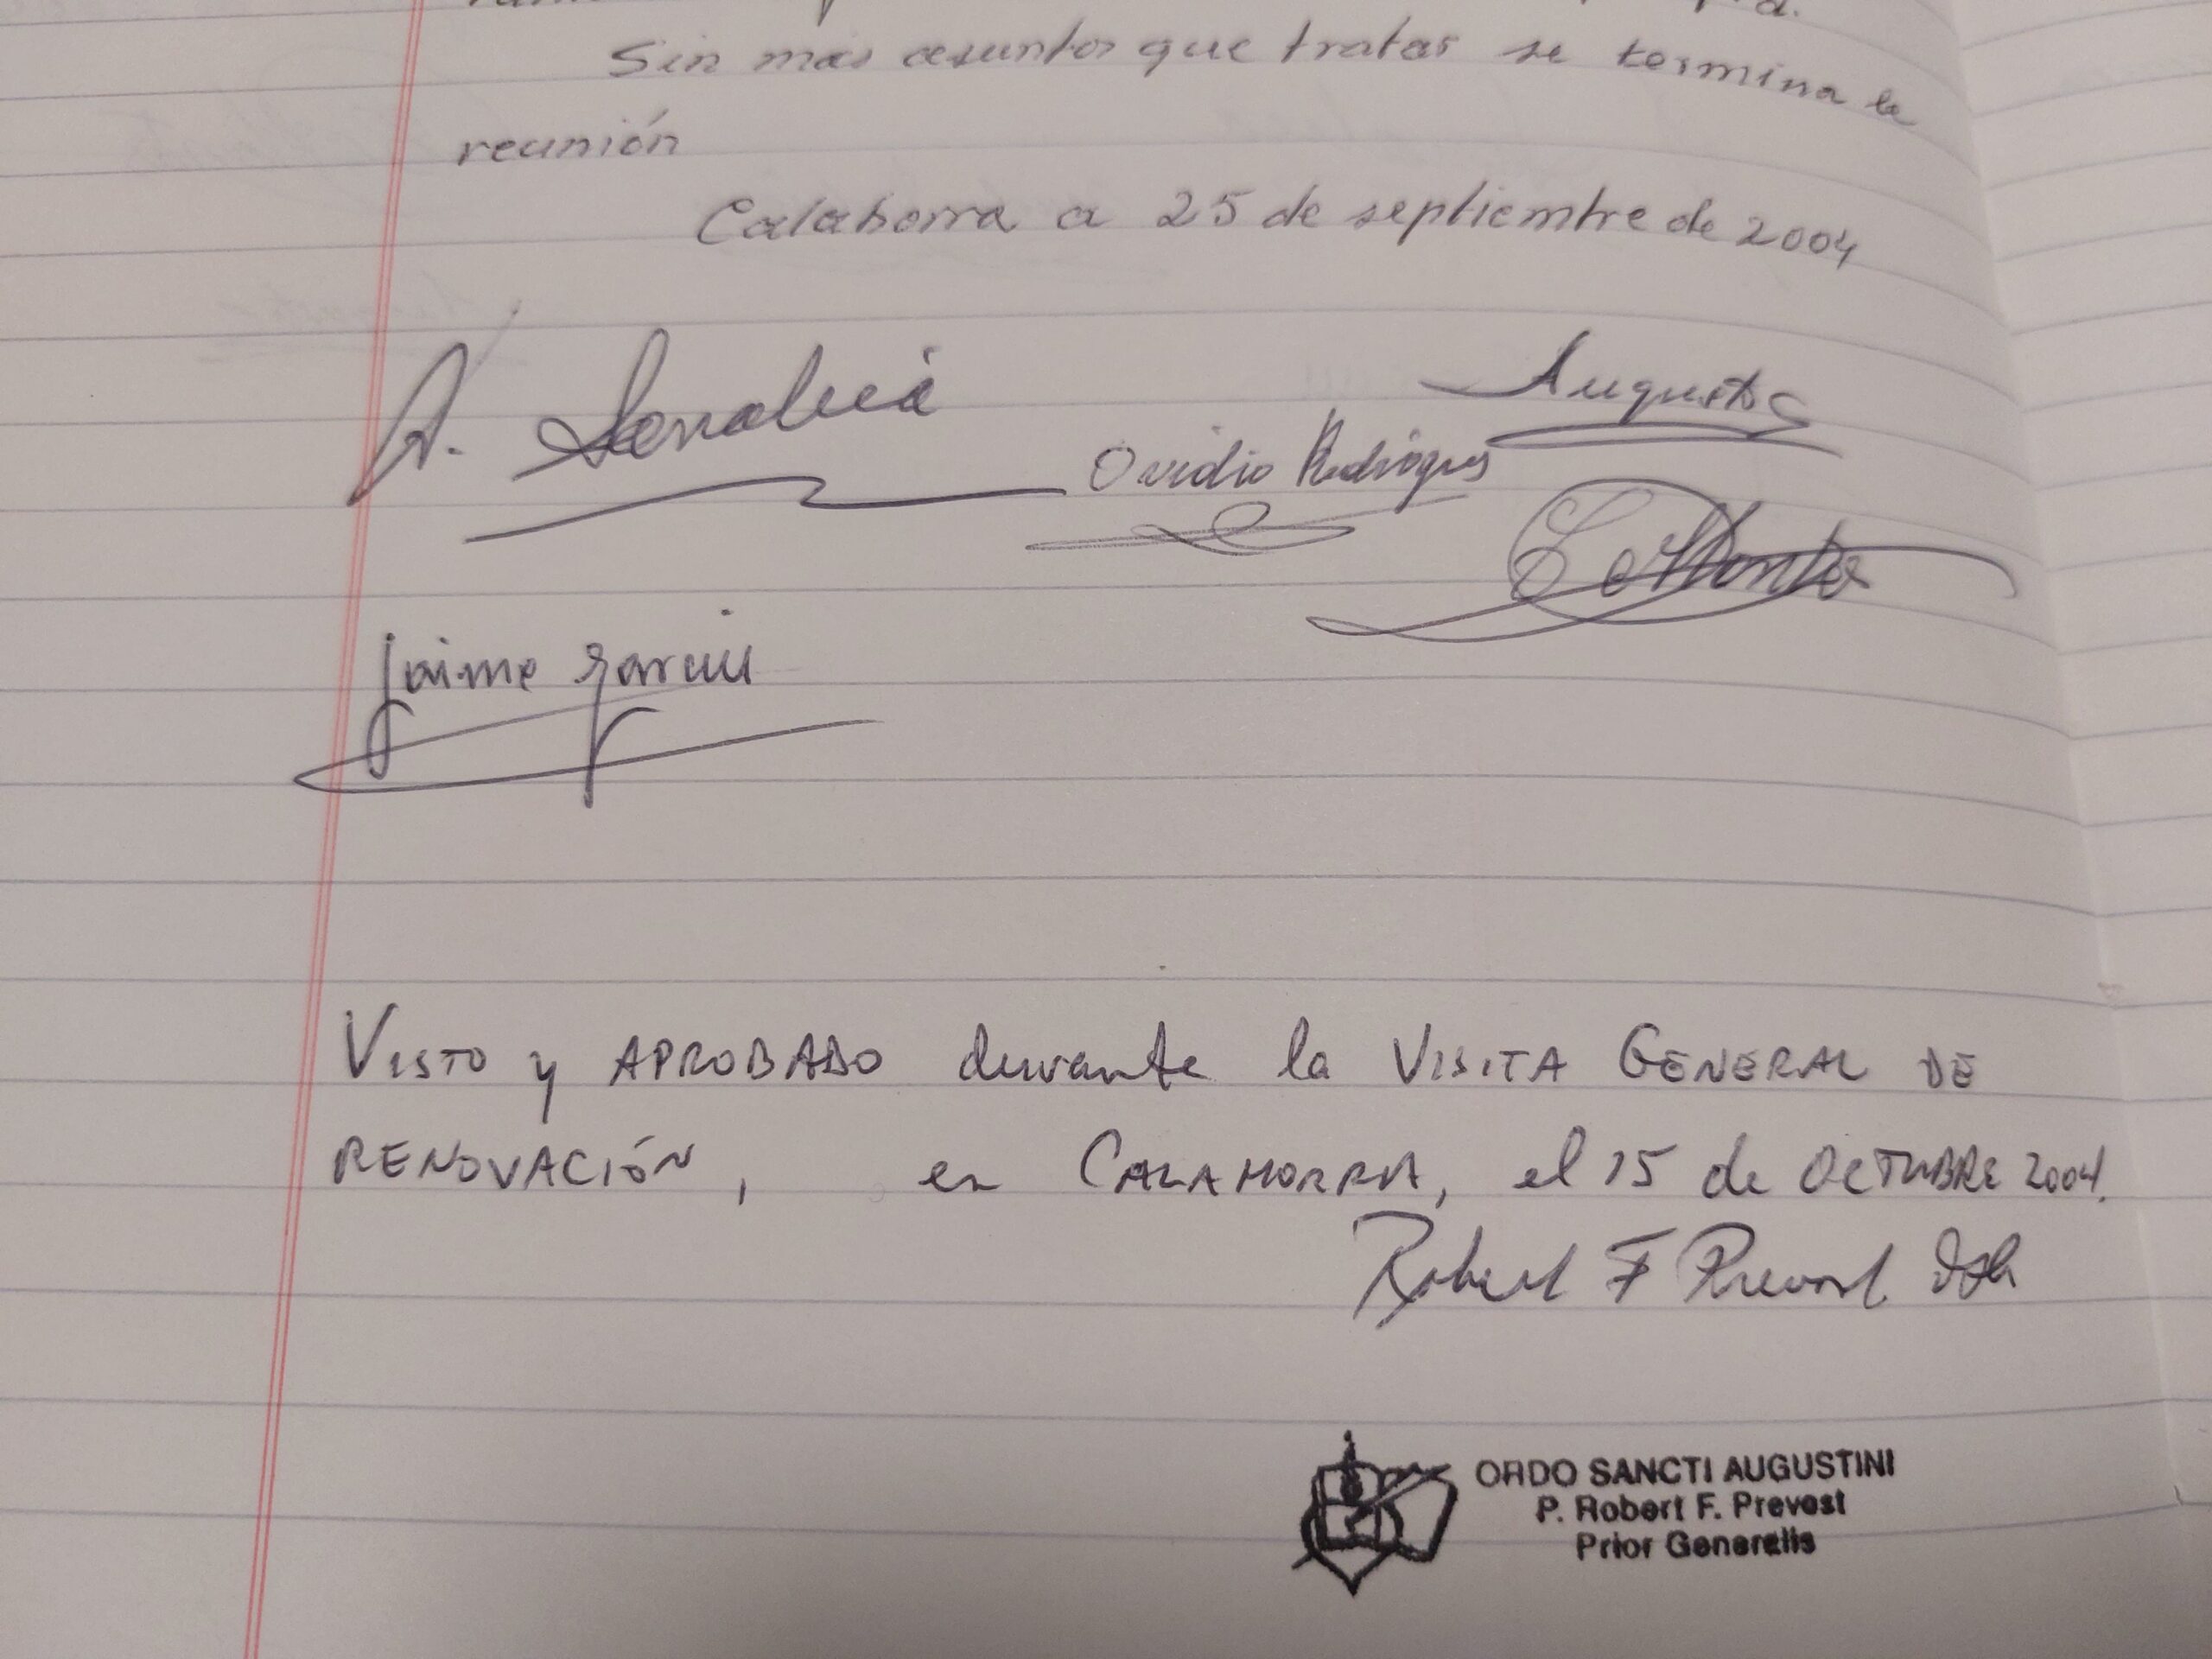 Sin mas asuntos que tratar se termina la
reunión
Calahorra a 25 de septiembre de 2004
A.
Augusto
Ovidio Rodrígues
Jaime García
VISTO y APROBADO durante la VISITA GENERAL DE
RENOVACIÓN, en CALAHORRA, el 15 de OCTUBRE 2004.
Robert F Prevost OSA
ORDO SANCTI AUGUSTINI
P. Robert F. Prevost
Prior Generalis